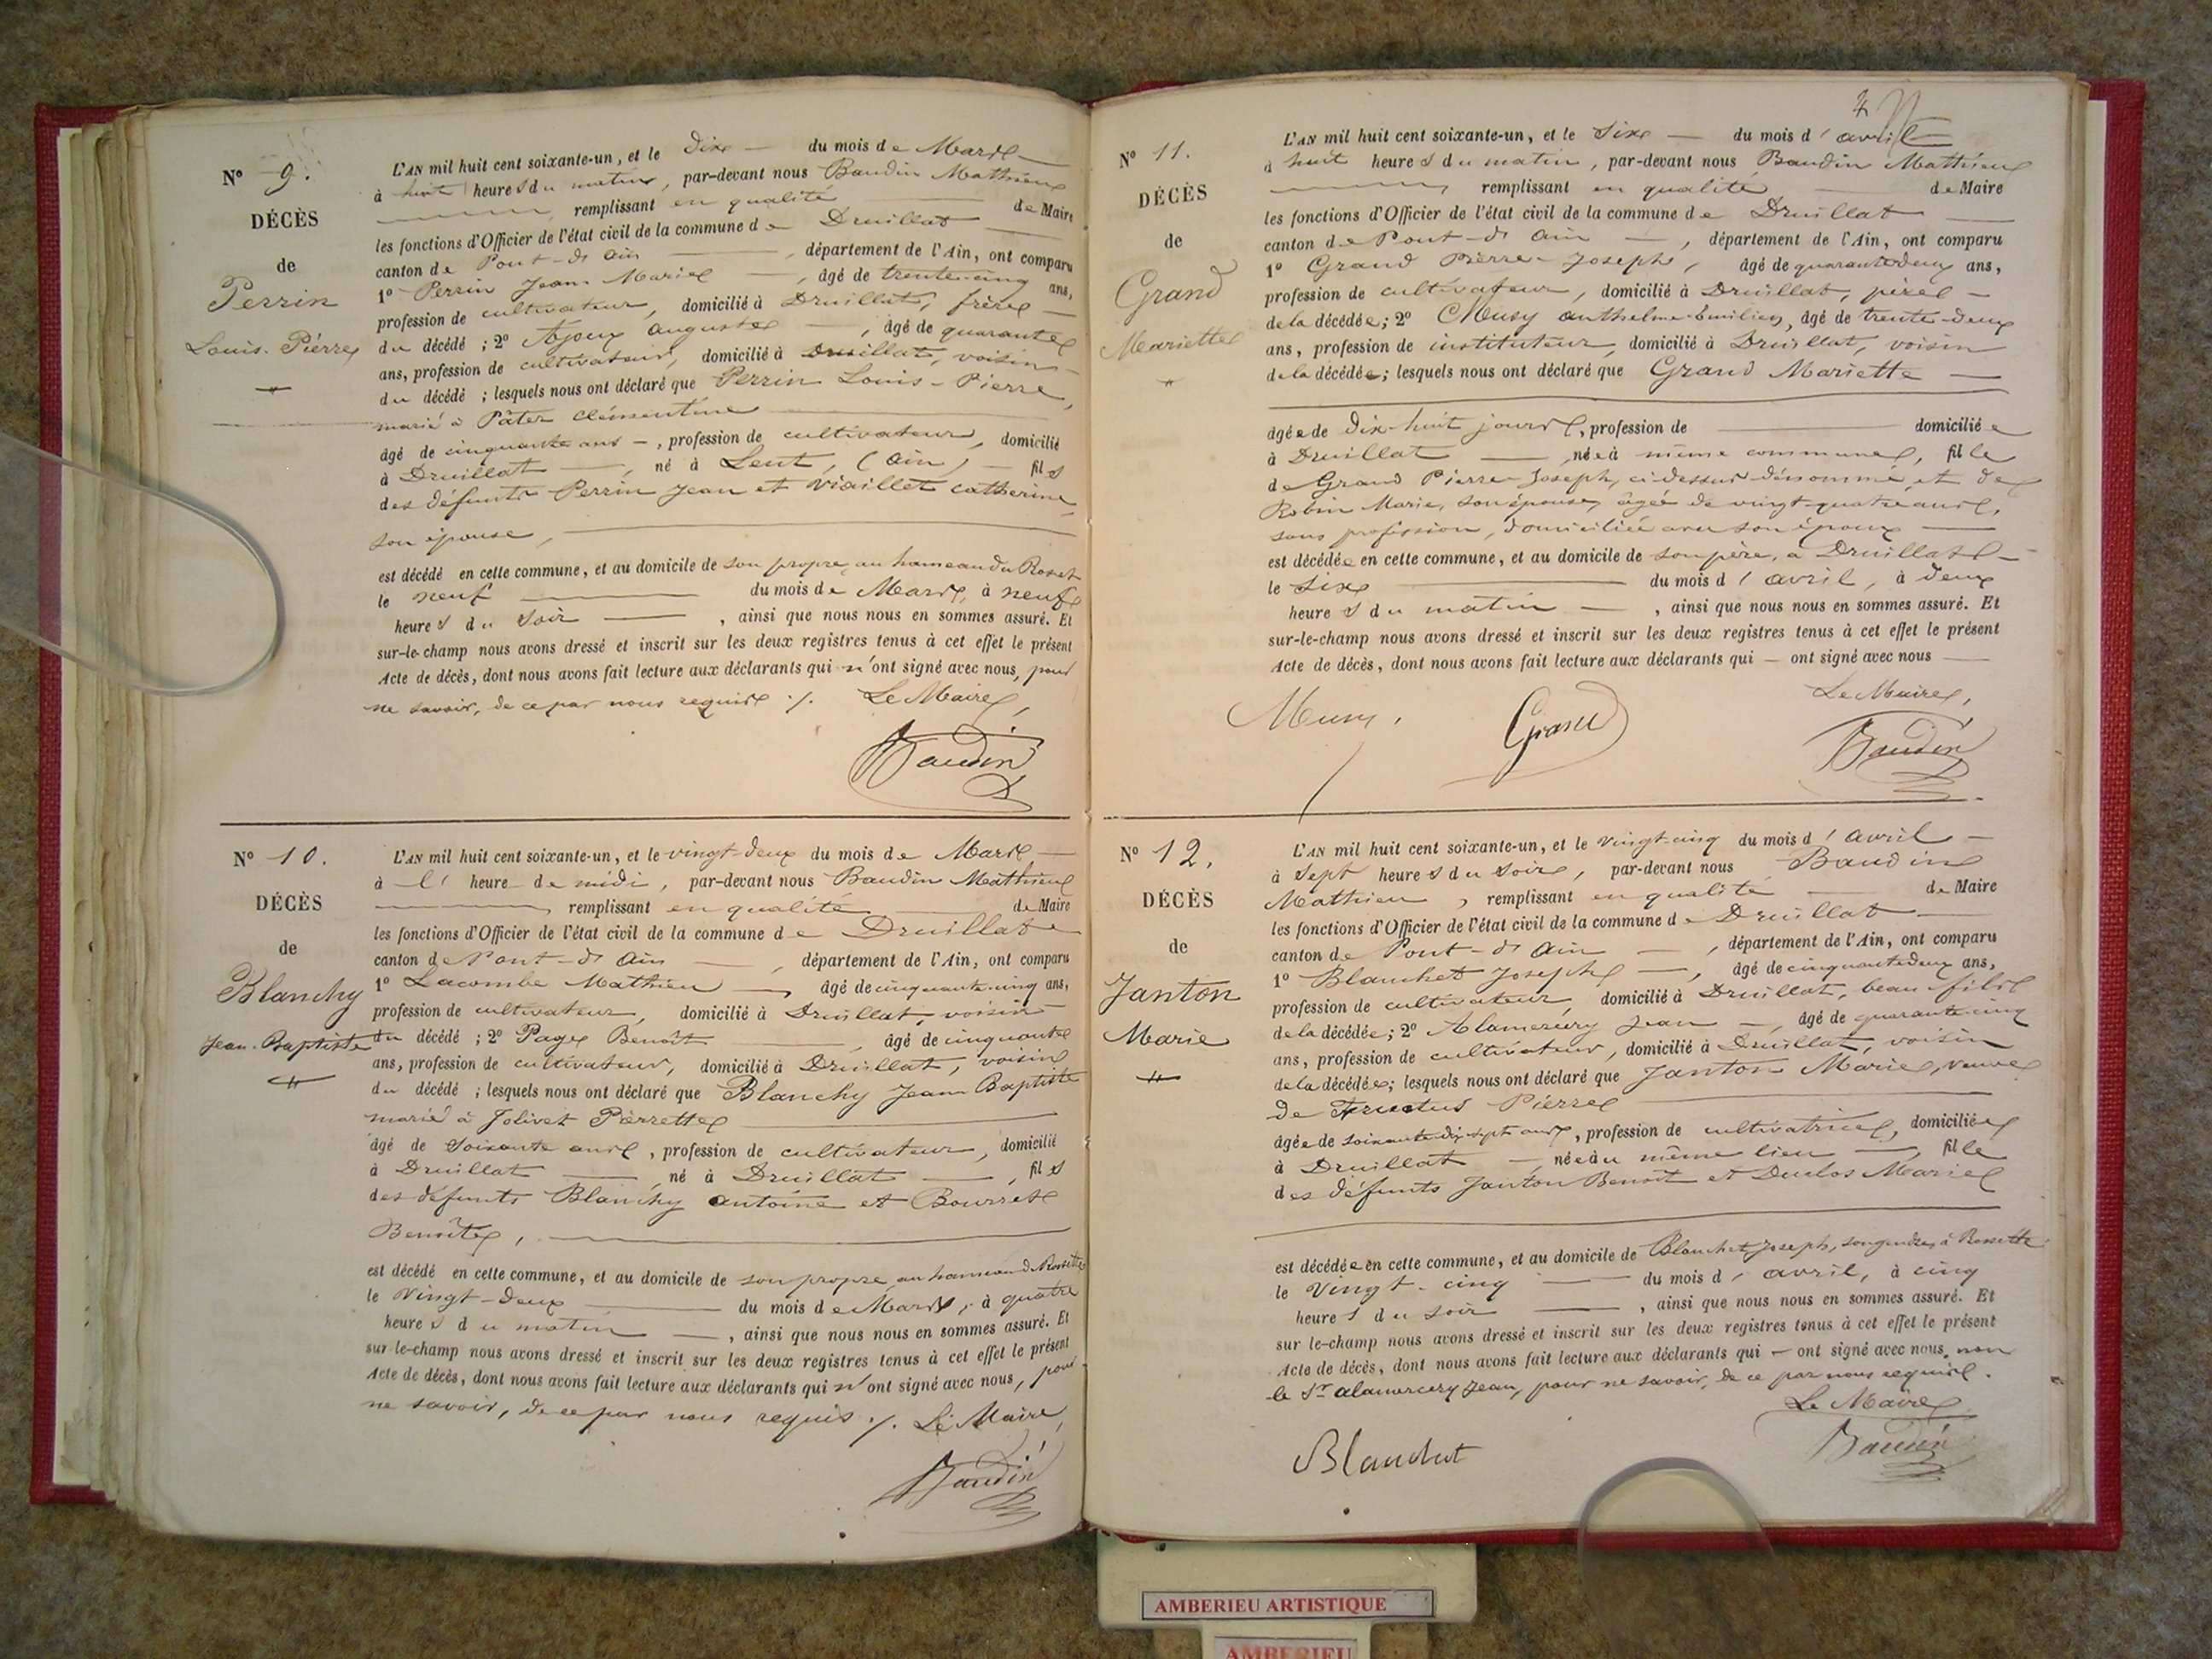 N° 9.
DÉCÈS
de
Perrin
Louis-Pierre
L'AN mil huit cent soixante-un, et le dix du mois de Mars
à huit heures du matin, par-devant nous Baudin Mathieu
remplissant en qualité de Maire
les fonctions d'Officier de l'état civil de la commune de Druillat
canton de Pont-d'Ain, département de l'Ain, ont comparu
1° Perrin Jean Marie, âgé de trente-cinq ans,
profession de cultivateur, domicilié à Druillat, frère
du décédé ; 2° Ajoux Auguste, âgé de quarante
ans, profession de cultivateur, domicilié à Druillat, voisin
du décédé ; lesquels nous ont déclaré que Perrin Louis-Pierre,
marié à Pâter Clémentine
âgé de cinquante ans, profession de cultivateur, domicilié
à Druillat, né à Lent, (Ain) fils
des défunts Perrin Jean et Viaillet Catherine,
son épouse,
est décédé en cette commune, et au domicile de son propre, au hameau du Rosset
le neuf du mois de Mars, à neuf
heures du soir, ainsi que nous nous en sommes assuré. Et
sur-le-champ nous avons dressé et inscrit sur les deux registres tenus à cet effet le présent
Acte de décès, dont nous avons fait lecture aux déclarants qui n'ont signé avec nous, pour
ne savoir, de ce par nous requis ./. Le Maire,
Baudin
N° 10.
DÉCÈS
de
Blanchy
Jean-Baptiste
L'AN mil huit cent soixante-un, et le vingt-deux du mois de Mars
à l' heure de midi, par-devant nous Baudin Mathieu
remplissant en qualité de Maire
les fonctions d'Officier de l'état civil de la commune de Druillat
canton de Pont-d'Ain, département de l'Ain, ont comparu
1° Lacombe Mathieu, âgé de cinquante-cinq ans,
profession de cultivateur, domicilié à Druillat, voisin
du décédé ; 2° Page Benoît, âgé de cinquante
ans, profession de cultivateur, domicilié à Druillat, voisin
du décédé ; lesquels nous ont déclaré que Blanchy Jean Baptiste
marié à Jolivet Pierrette
âgé de soixante ans, profession de cultivateur, domicilié
à Druillat, né à Druillat, fils
des défunts Blanchy Antoine et Bourret
Benoîte,
est décédé en cette commune, et au domicile de son propre, au hameau de Rossette
le vingt-deux du mois de Mars, à quatre
heures du matin, ainsi que nous nous en sommes assuré. Et
sur-le-champ nous avons dressé et inscrit sur les deux registres tenus à cet effet le présent
Acte de décès, dont nous avons fait lecture aux déclarants qui n'ont signé avec nous, pour
ne savoir, de ce par nous requis ./. Le Maire,
Baudin
N° 11.
DÉCÈS
de
Grand
Mariette
L'AN mil huit cent soixante-un, et le six du mois d'avril
à huit heures du matin, par-devant nous Baudin Mathieu
remplissant en qualité de Maire
les fonctions d'Officier de l'état civil de la commune de Druillat
canton de Pont-d'Ain, département de l'Ain, ont comparu
1° Grand Pierre-Joseph, âgé de quarante-deux ans,
profession de cultivateur, domicilié à Druillat, père
de la décédée ; 2° Musy Anthelme-Emilien, âgé de trente-deux
ans, profession de instituteur, domicilié à Druillat, voisin
de la décédée ; lesquels nous ont déclaré que Grand Mariette
âgée de dix-huit jours, profession de domiciliée
à Druillat, née à même commune, fille
de Grand Pierre-Joseph, ci-dessus dénommé, et de
Robin Marie, son épouse, âgée de vingt-quatre ans,
sans profession, domiciliée avec son époux
est décédée en cette commune, et au domicile de son père, à Druillat
le six du mois d'avril, à deux
heures du matin, ainsi que nous nous en sommes assuré. Et
sur-le-champ nous avons dressé et inscrit sur les deux registres tenus à cet effet le présent
Acte de décès, dont nous avons fait lecture aux déclarants qui ont signé avec nous
Le Maire,
Musy, Grand Baudin
N° 12.
DÉCÈS
de
Janton
Marie
L'AN mil huit cent soixante-un, et le vingt-cinq du mois d'avril
à sept heures du soir, par-devant nous Baudin
Mathieu, remplissant en qualité de Maire
les fonctions d'Officier de l'état civil de la commune de Druillat
canton de Pont-d'Ain, département de l'Ain, ont comparu
1° Blanchet Joseph, âgé de cinquante-deux ans,
profession de cultivateur, domicilié à Druillat, beau-fils
de la décédée ; 2° Alamercery Jean, âgé de quarante-cinq
ans, profession de cultivateur, domicilié à Druillat, voisin
de la décédée ; lesquels nous ont déclaré que Janton Marie, veuve
de Fructus Pierre
âgée de soixante-dix-sept ans, profession de cultivatrice, domiciliée
à Druillat, née au même lieu, fille
des défunts Janton Benoît et Duclos Marie
est décédée en cette commune, et au domicile de Blanchet Joseph, son gendre, à Rossette
le vingt-cinq du mois d'avril, à cinq
heures du soir, ainsi que nous nous en sommes assuré. Et
sur le-champ nous avons dressé et inscrit sur les deux registres tenus à cet effet le présent
Acte de décès, dont nous avons fait lecture aux déclarants qui ont signé avec nous, non
le Sr Alamercery Jean, pour ne savoir, de ce par nous requis.
Le Maire
Blanchet Baudin
AMBERIEU ARTISTIQUE
AMBERIEU